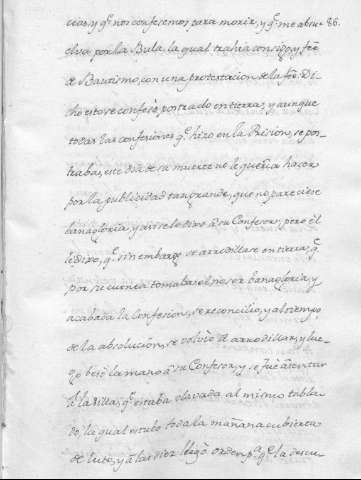 cias, y q.e nos confesemos para morir, y q.e me absu= 86.
elva por la Bula, la qual trahia consigo, y fee
de Bautismo, con una protestacion de la fee. Di=
cho esto se confesò postrado en tierra, y aunque
todas las confesiones q.e hizo en la Prision, se pos-
traba, este dia de su muerte no lo queria hacer
por la publicidad tan grande, que no pareciese
banagloria, y asi se lo dixo à su Confesor, pero èl
le dixo, q.e sin embargo se arrodillase en tierra, q.e
por su cuenta tomaba el no ser banagloria, y
acabada la Confesion, se reconciliò, y al tiempo
de la absolucion, se volviò à arrodillar, y lue=
go besò la mano à su Confesor, y se fuè à sentar
à la silla, q.e estaba clavada al mismo tabla=
do, la qual estubo toda la mañana cubierta
de luto, y à las diez llegò orden p.a q.e la descu=